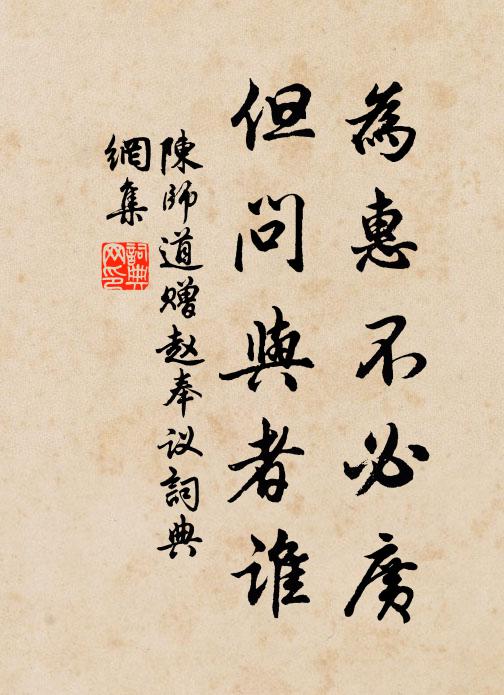 為惠不必廣
但問與者誰
陳師道赠赵奉议詞典
網集
詞典
网印